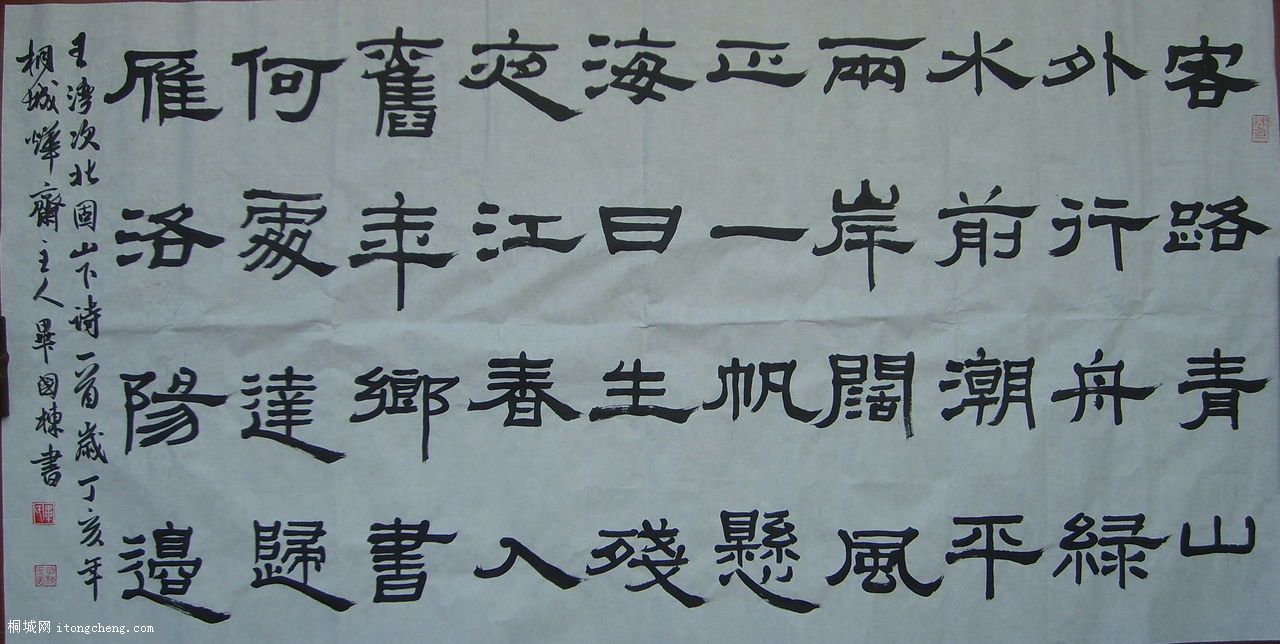 客路青山
外行舟綠
水前潮平
兩岸闊風
正一帆懸
海日生殘
夜江春入
舊年鄉書
何處達歸
雁洛陽邊
王湾次北固山下诗一首歲丁亥年
桐城燁齋主人畢國棟書
桐城网 itongcheng.com